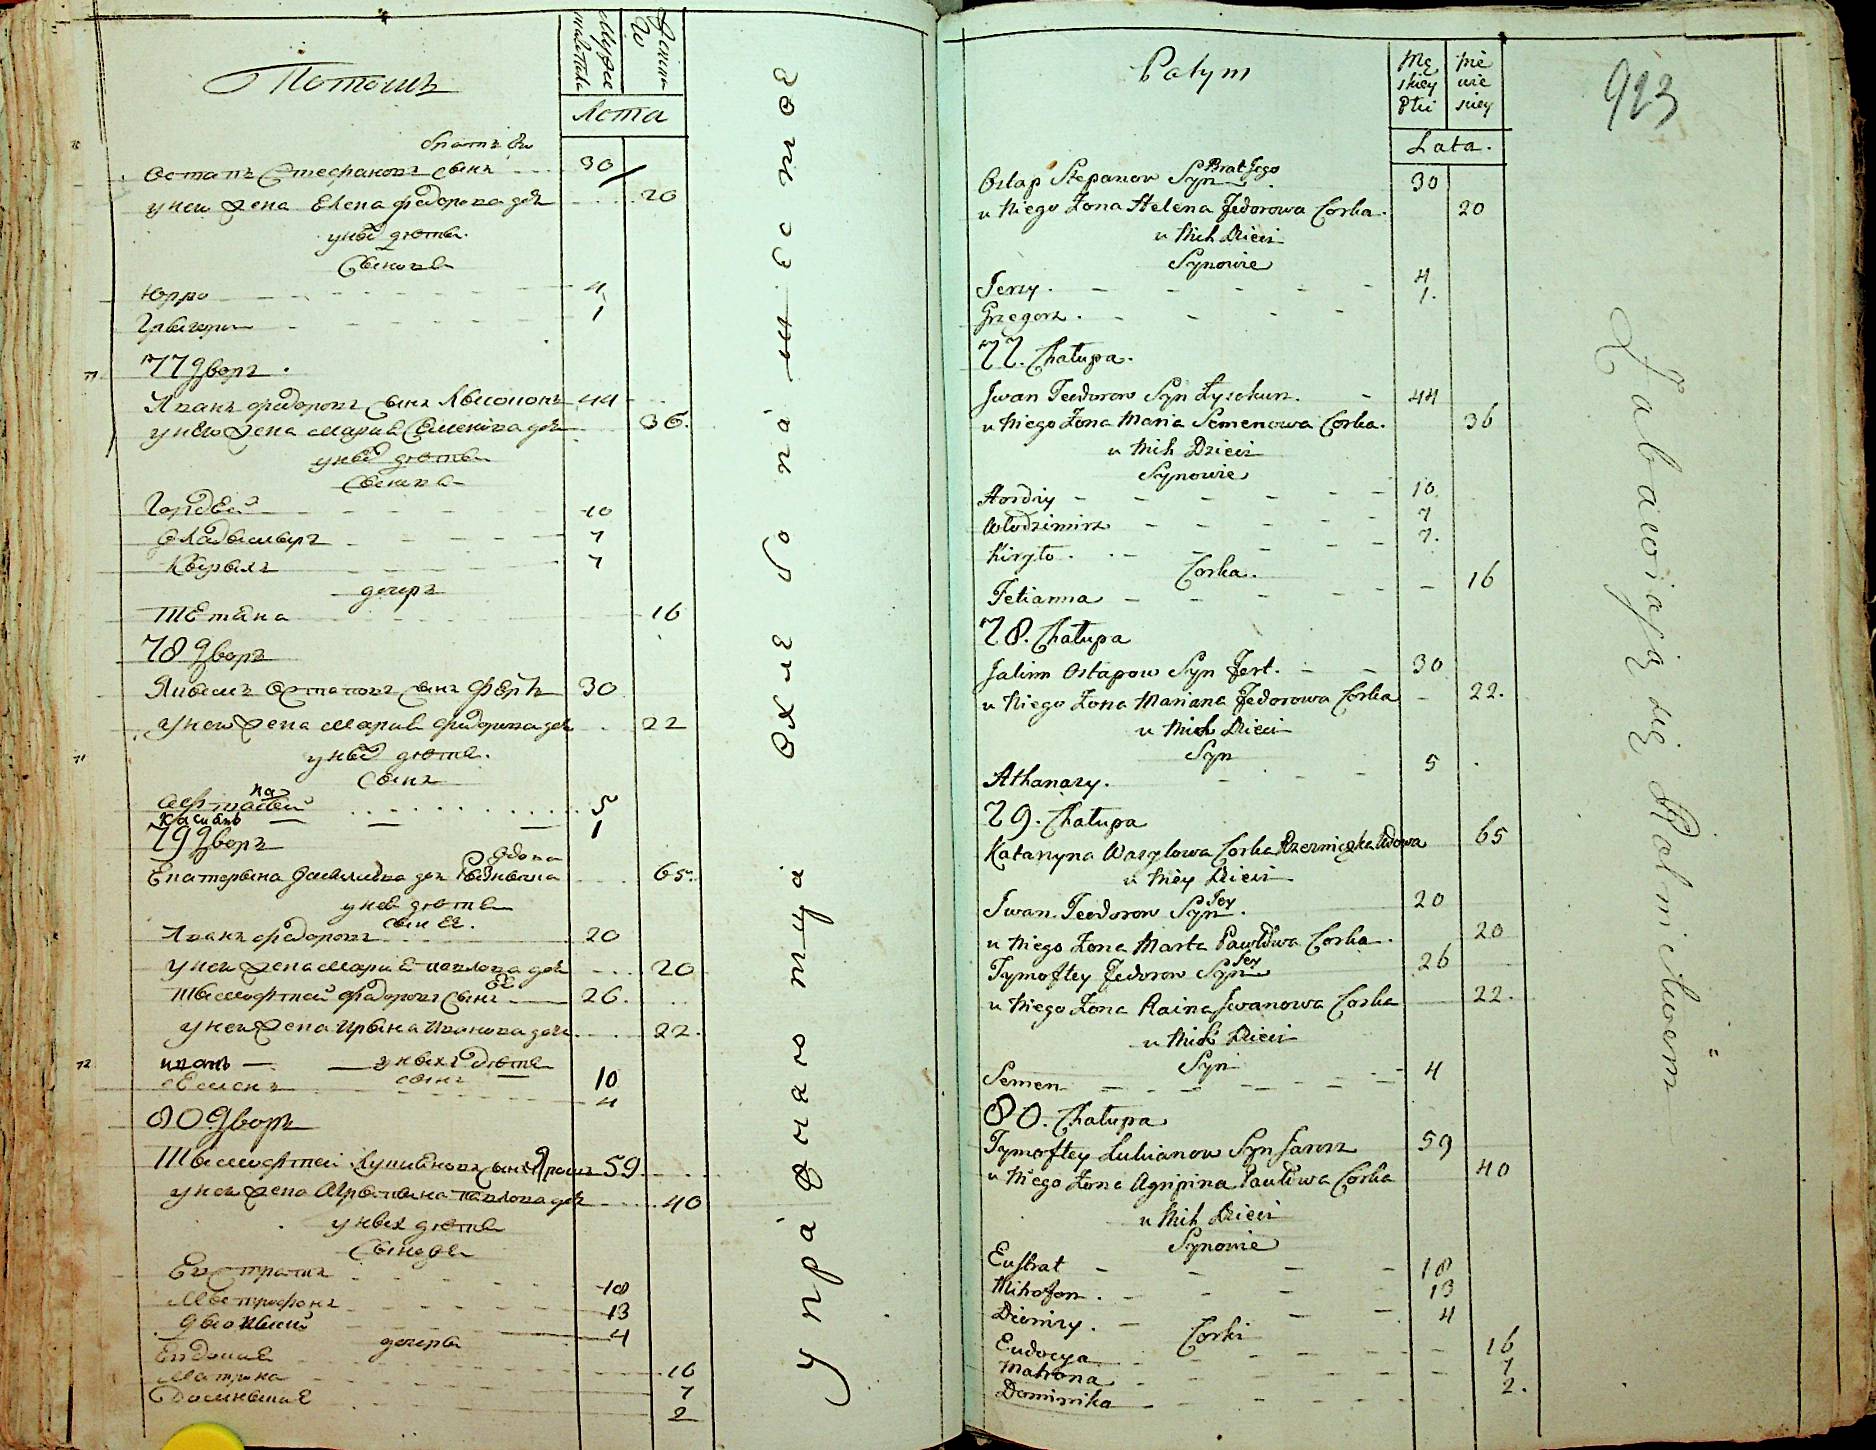 Потомъ
Мужеска
Женска
Лѣта
братъ его
Остапъ Стефановъ сынъ 30
у него жена Елена федорова дочь 20
у них дѣти
Сынове
Юрко 4
Григори 1
77 Дворъ
Иванъ федоровъ сынъ 44
у него жена Мария Семенова дочь 36
у них дѣти
Сынове
Гордей 10
Владымыръ 7
Кырылъ 7
дочерь
Тетяна 16
78 Дворъ
Якымъ Остаповъ сынъ Фертъ 30
у него жена Мария федорова дочь 22
у них дѣти
сынъ
5
Касиянъ 1
79 Дворъ
вдова
Екатерына дочь 65
у нея дѣти
сын ее
Иванъ федоровъ 20
у него жена Мария павлова дочь 20
Тымофтей федоровъ сынъ 26
у него жена Ирына Иванова дочь 22
иванъ у ных дѣти 10
Семенъ сынъ 4
80 Дворъ
Тымофтей Лукияновъ сынъ 59
у него жена Агрипина павлова дочь 40
у них дѣти
Сынове
Евстратъ 18
Митрофонъ 13
Дыонисий 4
дочери
Евдокия 16
Матрона 7
Доминикия 2
упражняютца хлебопашеством
Patym
Mę skiey Płci
Nie wie skiey
Lata.
923
Brat Jego
Ostap Stepanow Syn 30
u Niego Żona Helena Fedorowa Corka. 20
u Nich Dzieci
Synowie
Jerzy. 4
Grzegorz. 1.
77. Chałupa.
Jwan Teodorow Syn Łysohur. 44
u Niego Żona Maria Semenowa Corka. 36
u Nich Dzieci
Synowie
Hordiy 10
Włodzimirz 7
Kiryło. 7.
Corka.
Tetianna 16
78. Chałupa
Jakim Ostapow Syn Fert. 30
u Niego Żona Mariana Fedorowa Corka 22.
u Nich Dzieci
Syn
Athanazy. 5
79. Chałupa
Katarzyna Wasylowa Corka Rzezniczka Wdowa 65
u Niey Dzieci
Jwan Teodorow Syn Jey. 20
u Niego Żona Marta Pawłowa Corka. 20
Tymoftey Fedorow Syn Jey 26
u Niego Żona Raina Jwanowa Corka 22.
u Nich Dzieci
Syn
Semen 4
80. Chałupa
Tymoftey Lukianow Syn Jarosz 59
u Niego Żona Agripina Pawłowa Corka 40
u Nich Dzieci
Synowie
Eustrat 18
Mitrofon. 13
Dionizy. 4
Corki
Eudocya 16
Matrona 7
Dominika 2.
Zabawiaią się Rolnictwem